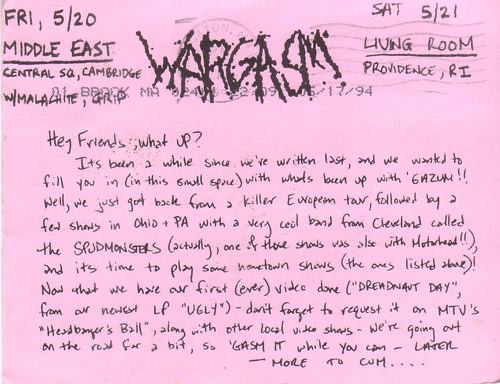 FRI, 5/20
MIDDLE EAST
CENTRAL SQ, CAMBRIDGE
W/MALACHITE, GRIP
WARGASM
SAT 5/21
LIVING ROOM
PROVIDENCE, RI
MA 05/17/94
Hey Friends, what up?
Its been a while since we've written last, and we wanted to
fill you in (in this small space) with whats been up with 'GAZUM!!
Well, we just got back from a killer European tour, followed by a
few shows in Ohio + PA with a very cool band from Cleveland called
the SPUDMONSTERS (actually, one of those shows was also with Motorhead!!),
and its time to play some hometown shows (the ones listed above)!
Now what we have our first (ever) video done ("DREADNAUT DAY",
from our newest LP "UGLY") - don't forget to request it on MTV's
"Headbanger's Ball", along with other local video shows - We're going out
on the road for a bit, so 'GASM IT while you can - LATER
- MORE TO CUM....